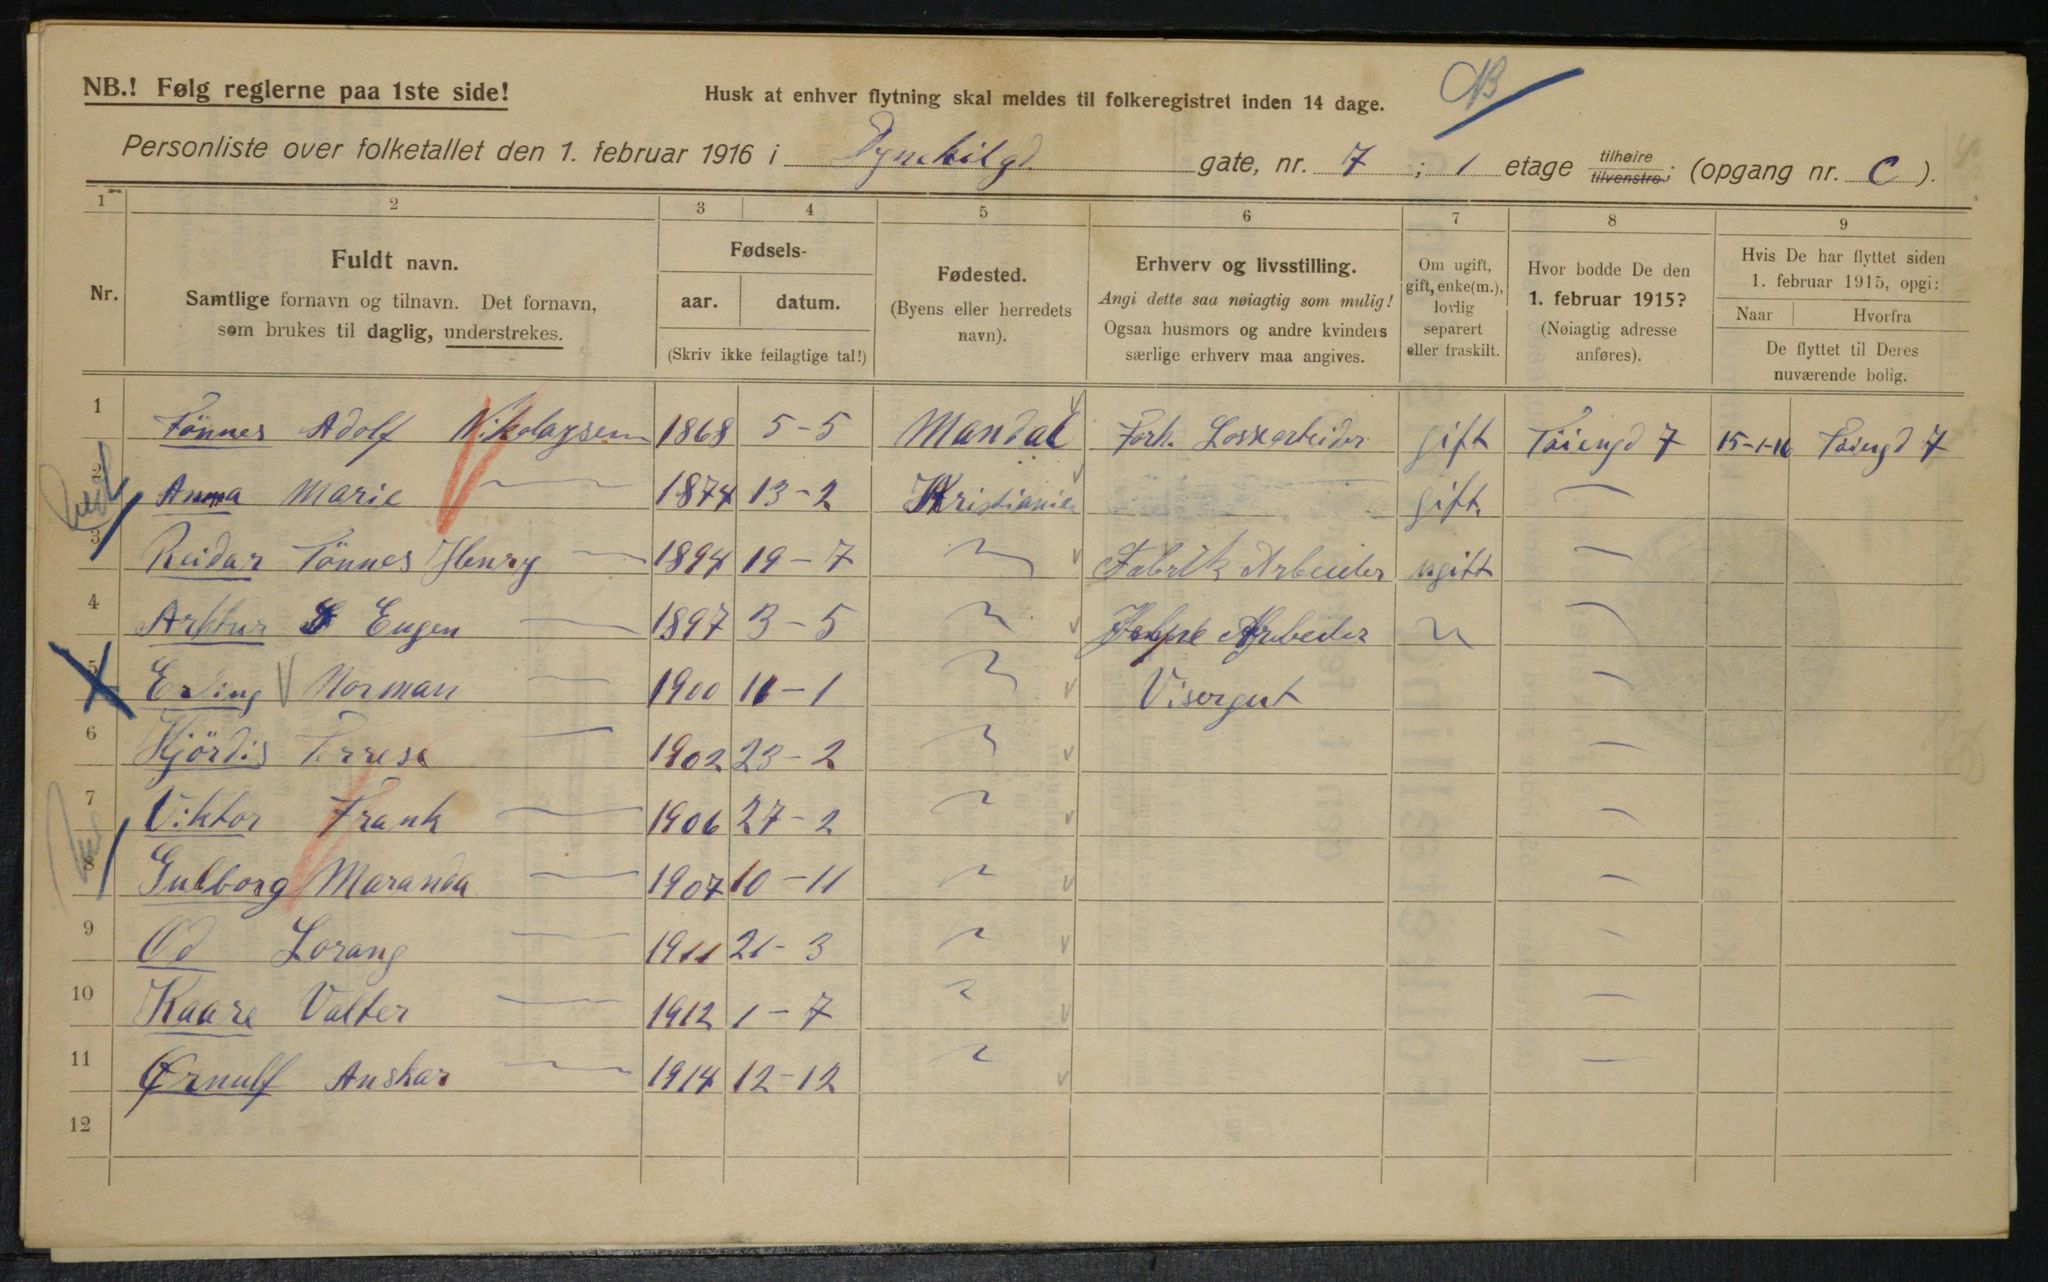 NB.! Følg reglerne paa 1ste side!
Husk at enhver flytning skal meldes til folkeregistret inden 14 dage.
Personliste over folketallet den 1. februar 1916 i Dynekilgd. gate, nr. 7 ; 1 etage tilhøire tilvenstre; (opgang nr. C ).
1 2 3 4 5 6 7 8 9
Nr.
Fuldt navn.
Samtlige fornavn og tilnavn. Det fornavn,
som brukes til daglig, understrekes.
Fødsels-
aar. datum.
(Skriv ikke feilagtige tal!)
Fødested.
(Byens eller herredets
navn).
Erhverv og livsstilling.
Angi dette saa nøiagtig som mulig!
Ogsaa husmors og andre kvinders
særlige erhverv maa angives.
Om ugift,
gift, enke(m.),
lovlig
separert
eller fraskilt.
Hvor bodde De den
1. februar 1915?
(Nøiagtig adresse
anføres).
Hvis De har flyttet siden
1. februar 1915, opgi:
Naar Hvorfra
De flyttet til Deres
nuværende bolig.
1 Tönnes Adolf Nikolaysen 1868 5-5 Mandal Forh. Lossearbeider gift Töiengd 7 15-1-16 Töiengd 7
2 Anna Marie — 1874 13-2 Kristiania gift. —
3 Reidar Tönnes Henry — 1894 19-7 " Fabrik Arbeider ugift —
4 Arthur Eugen — 1897 3-5 " Arbeider " —
5 Erling Norman — 1900 11-1 " Visergut —
6 Hjördis Terresa — 1902 23-2 " —
7 Viktor Frank — 1906 27-2 " —
8 Gulborg Maranda — 1907 10-11 " —
9 Od Lorang — 1911 21-3 " —
10 Kaare Valter — 1912 1-7 " —
11 Ørnulf Anskar — 1914 12-12 " —
12